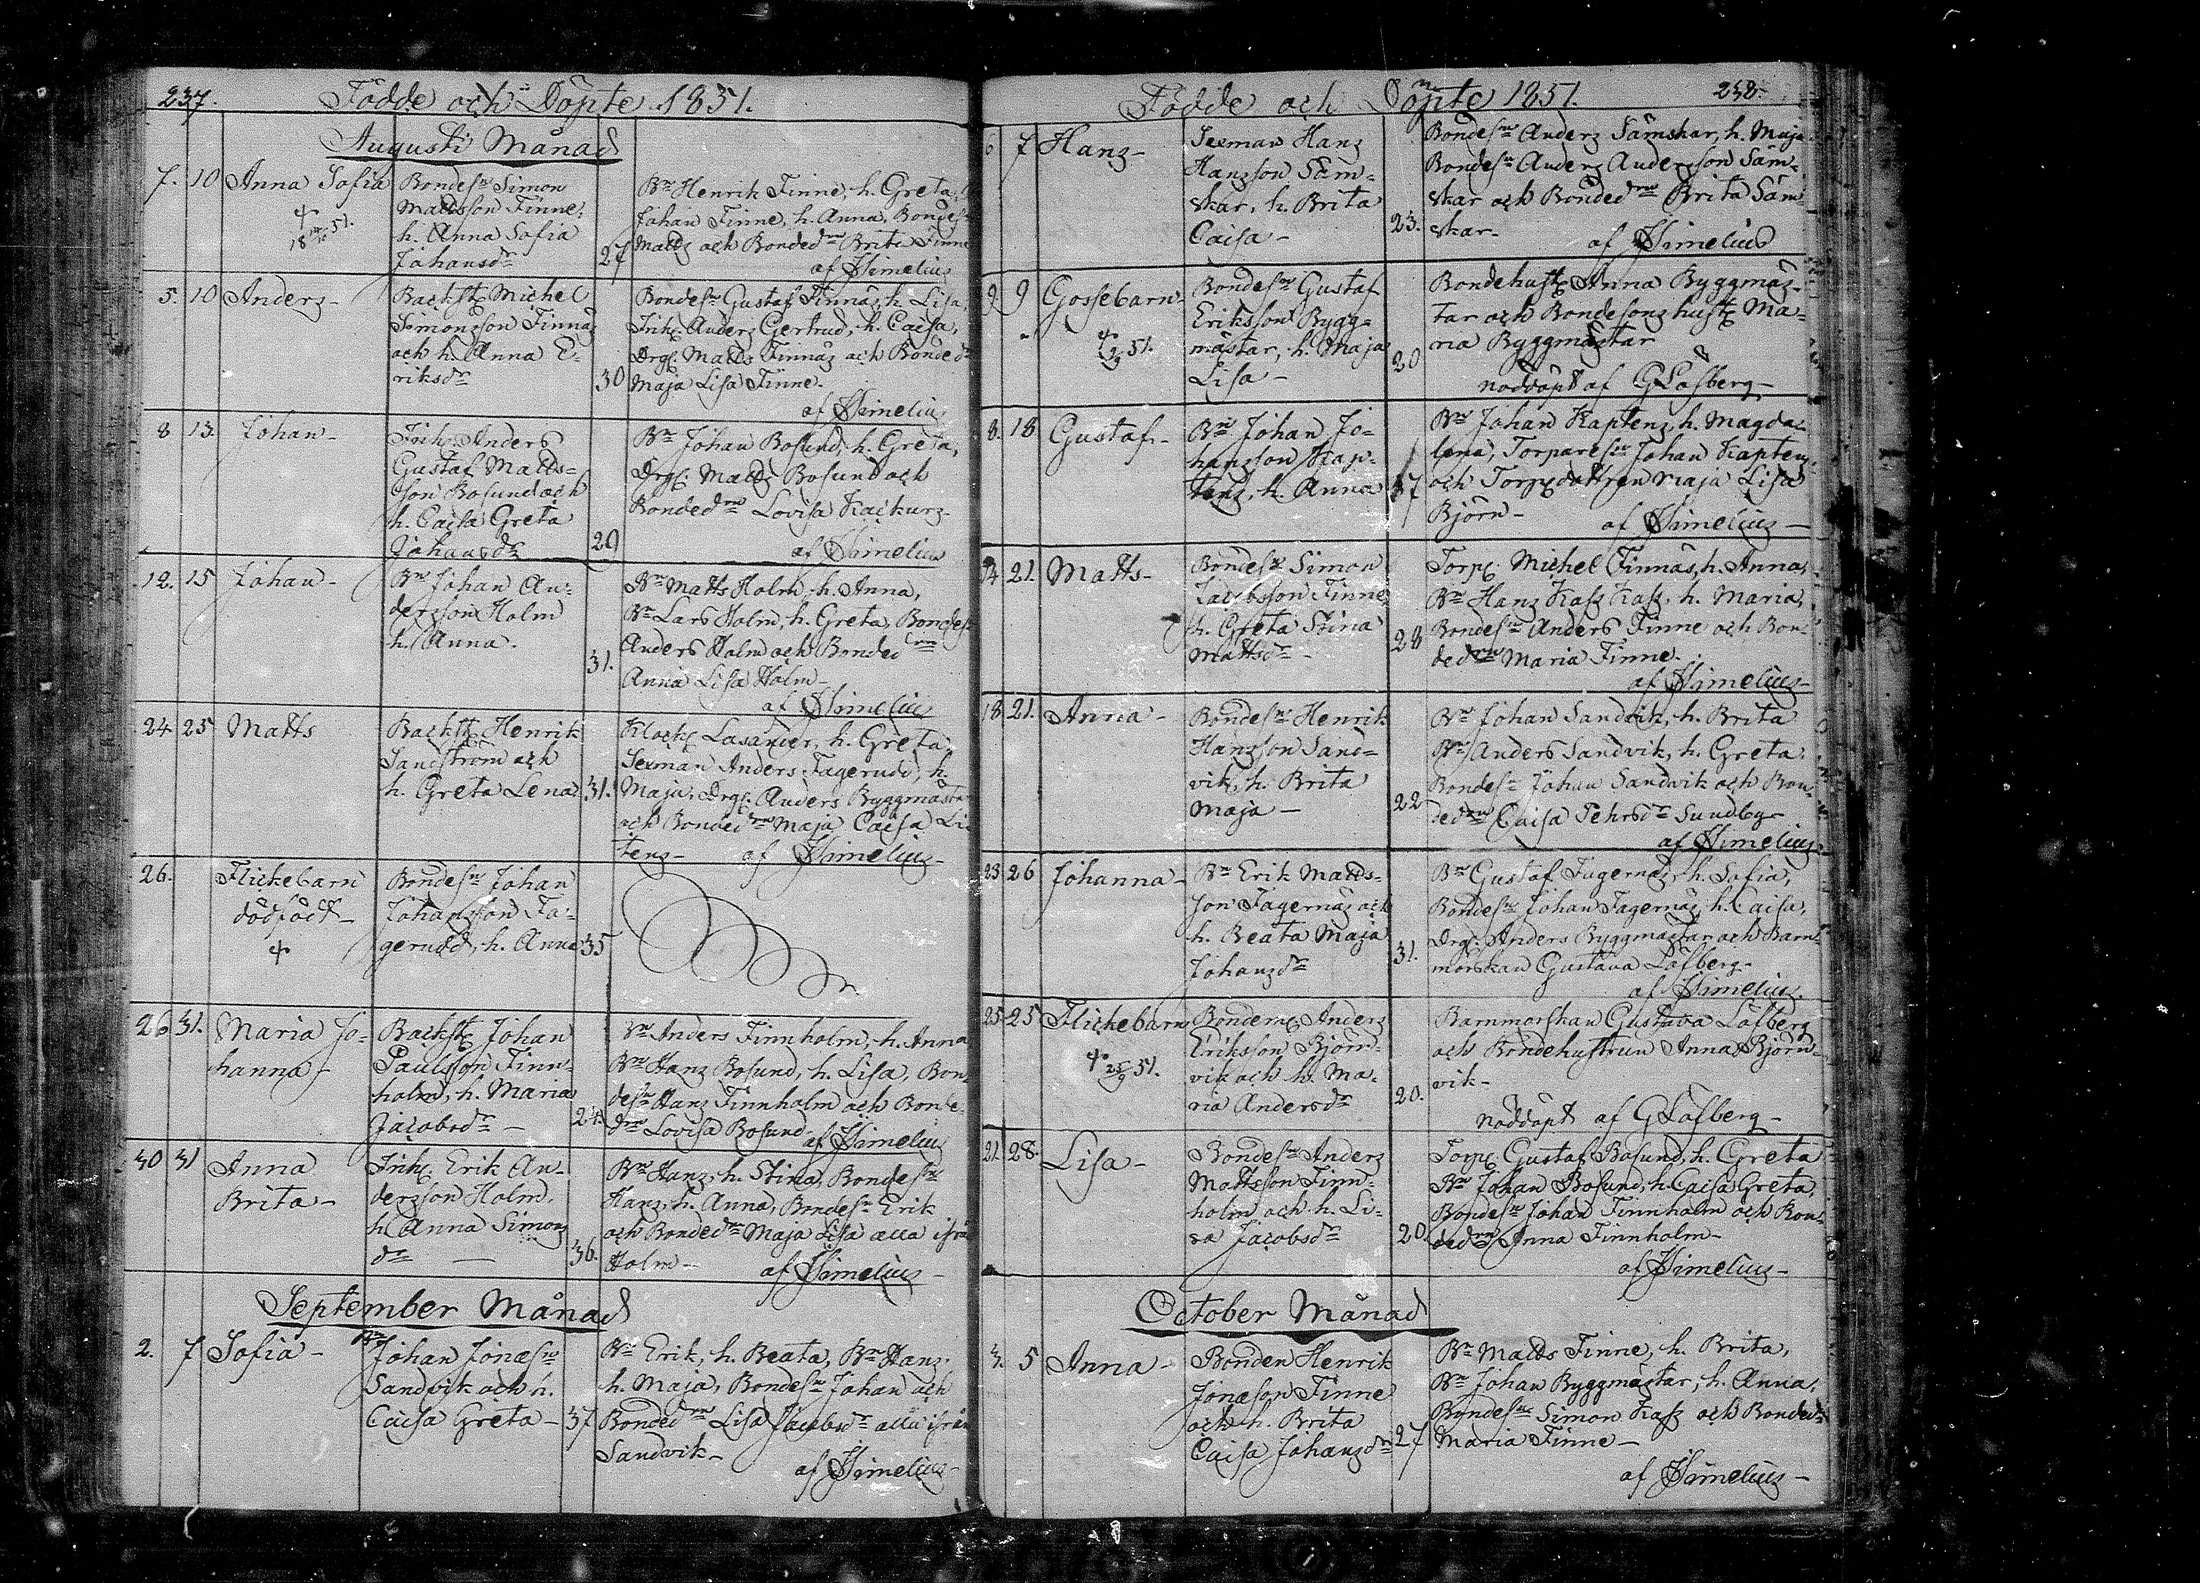 237.
Födde och Döpte 1851.
Augusti Månad
7. 10 Anna Sofia
Bondes:n Simon
Mattsson Finne,
h. Anna Sofia
Johansdr
27
B:n Henrik Finne, h. Greta,
Johan Finne, h. Anna, Bondes:n
Matts och Bonded:rn Brita Finne
af Simelius
5. 10 Anders-
Backst. Michel
Simonsson Finnäs
och h. Anna E-
riksdr
30
Bondes:n Gustaf Finnäs, h. Lisa,
Inh. Anders Gertrud, h. Caisa,
Drg. Matts Finnäs och Bonded:r
Maja Lisa Finne.
af Simelius
8 13. Johan-
Inh. Anders
Gustaf Matts-
son Bosund och
h. Caisa Greta
Johansdr
29
B:n Johan Bosund, h. Greta,
Drg. Matts Bosund och
Bonded:rn Lovisa Kackurs-
af Simelius
12. 15 Johan-
B:n Johan An-
dersson Holm
h. Anna.
31.
B:n Matts Holm, h. Anna,
B:n Lars Holm, h. Greta, Bondes:n
Anders Holm och Bonded:rn
Anna Lisa Holm-
af Simelius
24. 25 Matts
Backst. Henrik
Sandström och
h. Greta Lena
31.
Klock. Lasander, h. Greta
Sexman Anders Fagerudd, h.
Maja, Drg. Anders Byggmästar
och Bonded:rn Maja Caisa Li-
tens- af Simelius-
26.
Flickebarn
dödfödt-
Bondes:n Johan
Johansson Fa-
gerudd, h. Anna
35
26 31. Maria Jo-
hanna-
Backst. Johan
Paulsson Finn-
holm, h. Maria
Jacobsdr-
24.
B:n Anders Finnholm, h. Anna
B:n Hans Bosund, h. Lisa, Bon-
des:n Hans Finnholm och Bonde-
d:rn Lovisa Bosund- af Simelius
30 31 Anna
Brita-
Inh. Erik An-
dersson Holm,
h. Anna Simons
dr -
36.
B:n Hans, h. Stina, Bondes:n
Hans, h. Anna, Bondes:n Erik
och Bonded:rn Maja Lisa alla ifrån
Holm- af Simelius-
September Månad
2. 7 Sofia-
B:n
Johan Jonæs:n
Sandvik och h.
Caisa Greta-
37
B:n Erik, h. Beata, B:n Hans,
h. Maja, Bondes:n Johan och
Bonded:rn Lisa Jacobsdr alla ifrån
Sandvik-
af Simelius-
Födde och Döpte 1851.
238.
6 7 Hans-
Sexman Hans
Hansson Säm-
skar, h. Brita
Caisa-
23.
Bondes:n Anders Sämskar, h. Maja
Bondes:n Anders Andersson Säm-
skar och Bonded:rn Brita Säm-
skar- af Simelius
9. 9 Gossebarn-
Bondes:n Gustaf
Eriksson Bygg-
mästar, h. Maja
Lisa-
20
Bondehust. Anna Byggmäs-
tar och Bondesons hust. Ma-
ria Byggmästar
nöddöpt af G Löfberg-
8. 18 Gustaf-
B:n Johan Jo-
hansson Kap-
tens, h. Anna
37
B:n Johan Kaptens, h. Magda-
lena, Torpares:n Johan Kaptens,
och Torpsdottren Maja Lisa
Björn- af Simelius-
14 21. Matts-
Bondes:n Simon
Jacobsson Finne,
h. Greta Stina
Mattsdr-
28
Torp. Michel Finnäs, h. Anna,
B:n Hans Kass Kass, h. Maria,
Bondes:n Anders Finne och Bon-
ded:rn Maria Finne.
af Simelius-
18 21. Anna-
Bondes:n Henrik
Hansson Sand-
vik, h. Brita
Maja-
22
B:n Johan Sandvik, h. Brita
B:n Anders Sandvik, h. Greta,
Bondes:n Johan Sandvik och Bon-
ded:rn Caisa Pehrsdr Sundby-
af Simelius
23 26 Johanna-
B:n Erik Matts-
son Fagernäs och
h. Beata Maja
Johansdr
31.
B:n Gustaf Fagernäs, h. Sofia,
Bondes:n Johan Fagernäs, h. Caisa,
Drg. Anders Byggmästar och Barn-
morskan Gustava Löfberg-
af Simelius.
25 25 Flickebarn
25/9 51.
Bondem. Anders
Eriksson Björn-
vik och h. Ma-
ria Andersdr
20.
Barnmorskan Gustava Löfberg
och Bondehustrun Anna Björn-
vik-
nöddöpt af G Löfberg-
21. 28. Lisa-
Bondes:n Anders
Mattsson Finn-
holm och h. Li-
sa Jacobsdr
20.
Torp. Gustaf Bosund, h. Greta
B:n Johan Bosund, h. Caisa Greta,
Bondes:n Johan Finnholm och Bon-
ded:rn Anna Finnholm-
af Simelius-
October Månad
3. 5 Anna-
Bonden Henrik
Jonæson Finne
och h. Brita
Caisa Johansdr
27
B:n Matts Finne, h. Brita,
B:n Johan Byggmästar, h. Anna,
Bondes:n Simon Kass och Bonded:r
Maria Finne-
af Simelius-